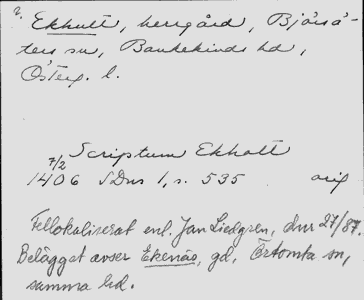 2. Ekhult, herrgård, Bjärsä-
ters sn, Bankekinds hd,
Österg. l.
Scriptum Ekholt
7/2
1406 SDns 1, s. 535 orig
Fellokaliserat enl. Jan Liedgren, dnr 27/87.
Belägget avser Ekenäs, gd, Örtomta sn,
samma hd.